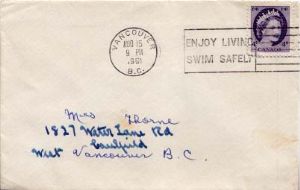 VANCOUVER
AUG 15
9 PM
1961
B.C.
ENJOY LIVING
SWIM SAFELY
CANADA
Miss Thorne
1827 Water Lane Rd
Caulfield
West Vancouver B.C.